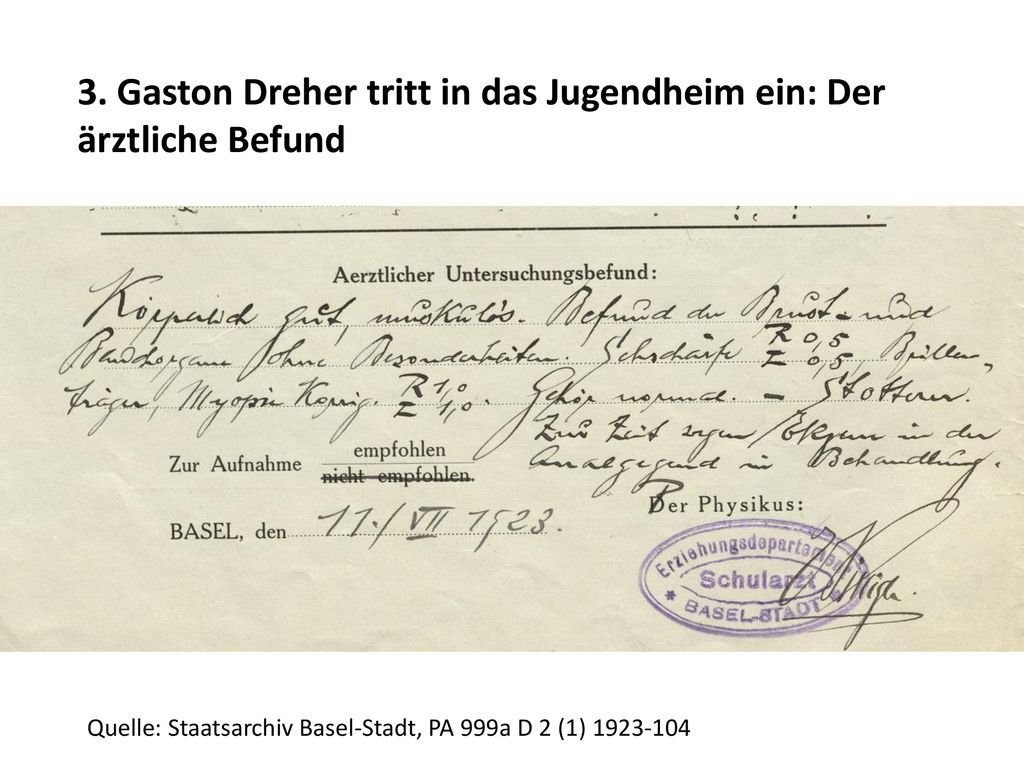 3. Gaston Dreher tritt in das Jugendheim ein: Der
ärztliche Befund
Aerztlicher Untersuchungsbefund:
Körperlich gut, muskulös. Befund der Brust- und
Bauchorgane ohne Besonderheiten. Sehschärfe R 0,5 L 0,5, Brillen-
träger, Myopie Korrig. R 1,0 L 1,0. Gehör normal. – Stotterer.
Zur Zeit wegen Ekzem in der
Analgegend in Behandlung.
Zur Aufnahme empfohlen
nicht empfohlen.
Der Physikus:
BASEL, den 11./VII 1923.
Erziehungsdepartement
Schularzt
* BASEL-STADT *
Quelle: Staatsarchiv Basel-Stadt, PA 999a D 2 (1) 1923-104